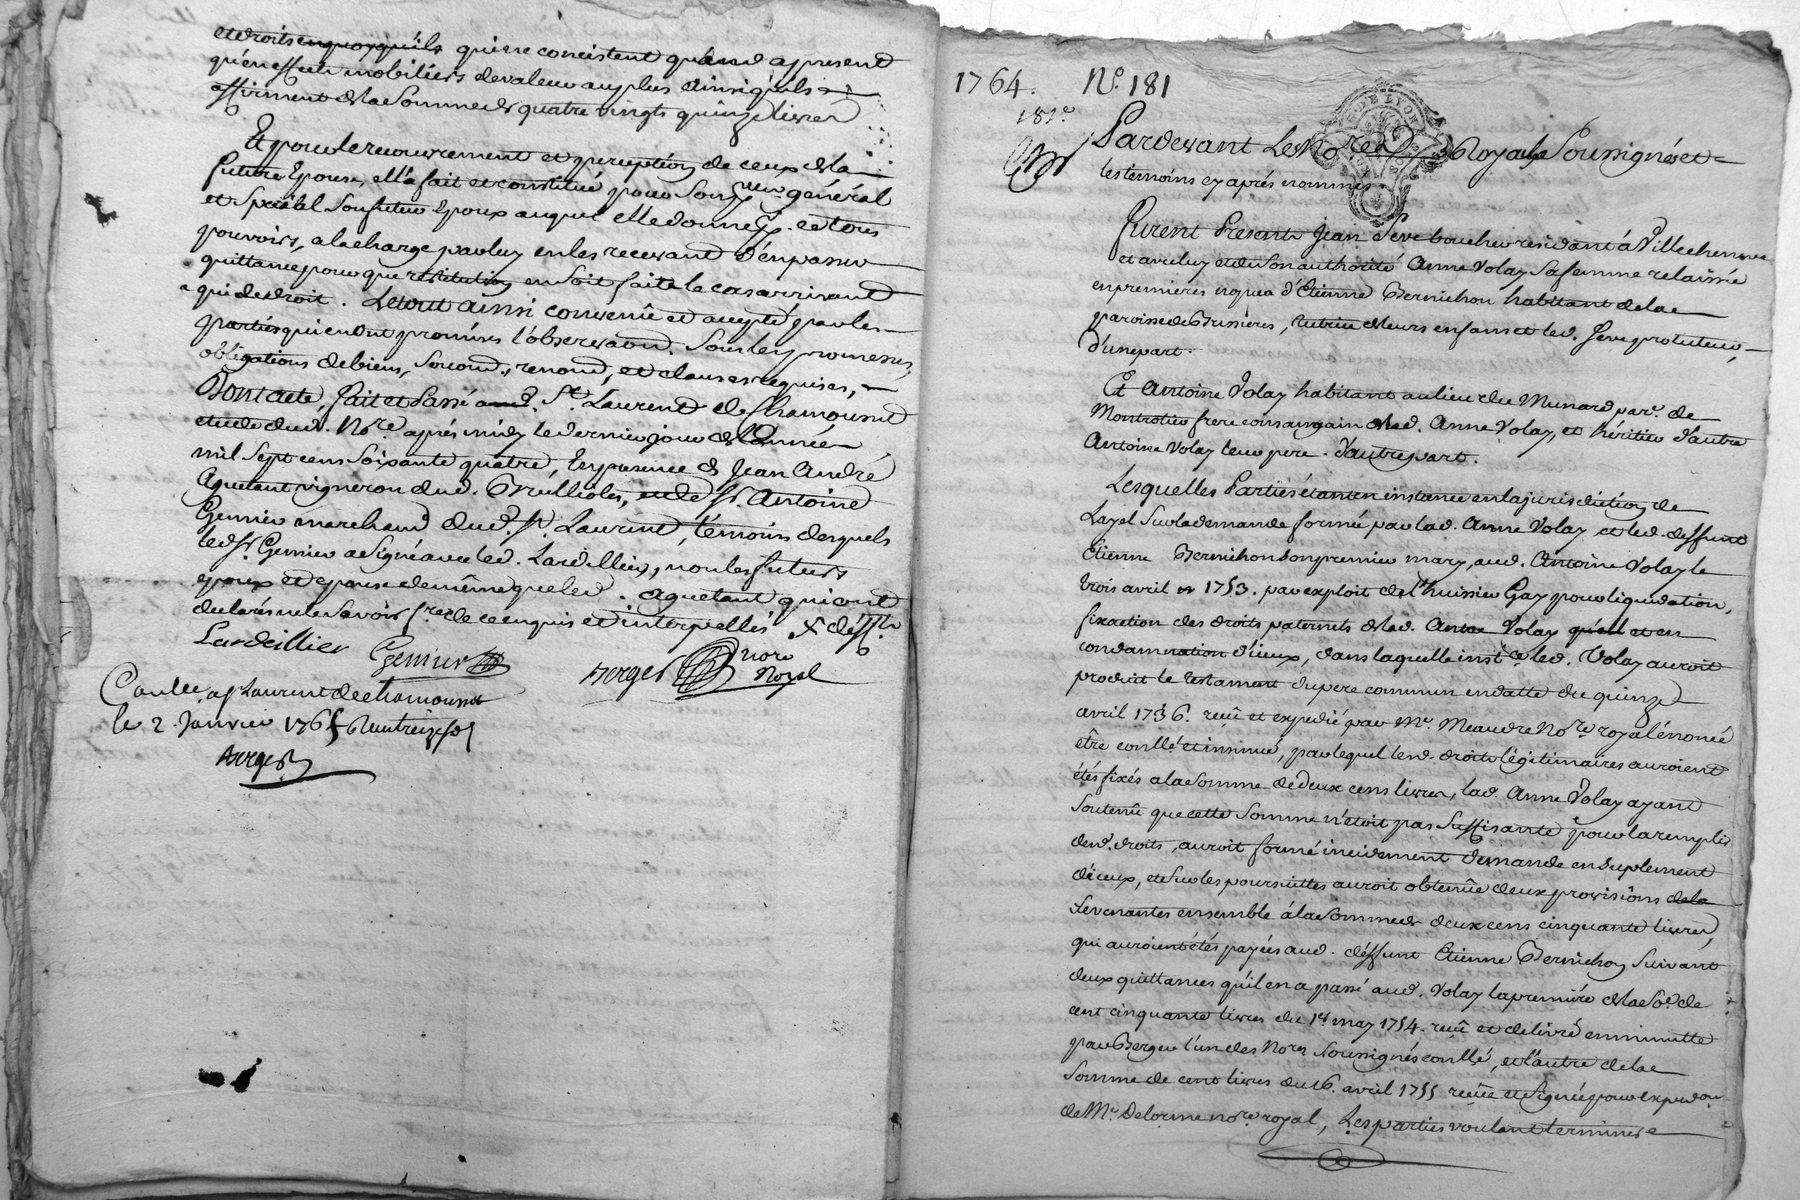 et droits en quoy qu'ils qui ne consistent quand a present
qu'en effects mobiliers de valeur au plus ainsi qu'ils
affirment de la Somme de quatre vingts quinze livres
Et pour le recouvrement et perception de ceux de la
future Epouse, elle a fait et constitué pour Son general
et Special Son futur Epoux auquel elle donne tous
pouvoirs, a la charge par luy en les recevant d'en passer
quittance pour que restitution en Soit faite le cas arrivant
a qui de droit. Le tout ainsi convenû et accepté par les
parties qui en ont promis l'observaon. Sous les promesses,
obligations de biens, Soumo., renono., et clauses requises,
Dont acte, fait et Passé aud. St. Laurent de Chamousset
etude dud. Nore. après midy le dernier jour de l'année
mil Sept cens Soixante quatre, En presence de Jean André
Aguetant vigneron dud. Brullioles, et de Sr. Antoine
Gemier marchand dud. St. Laurent, témoins desquels
led. Sr. Gemier a Signé avec led. Lardillier, non les futurs
epoux et epouse de même que led. Aguetant qui ont
declarés ne le Savoir faire de ce enquis et interpellés
Lardeillier Gemier
Berger Nore Royal
Conlle. a St Laurent de Chamousset
le 2. Janvier 1765
Berger
1764. No. 181
181e.
Pardevant Les Nores Royaux Soussignés et
les temoins cy après nommés
DE LYON
furent Presents Jean Seve boucher residant à Villecheneve
et avec luy et de Son authorité Anne Volay Sa femme relaissée
en premieres nopces d'Etienne Bernichon habitant de la
paroisse de Bussieres, tutrice de leurs enfans et led. Seve protuteur,
d'une part.
Et Antoine Volay habitant au lieu du Munard par. de
Montrotier frere consanguin de lad. Anne Volay, et héritier d'autre
Antoine Volay leur pere. d'autre part.
Lesquelles Parties étant en instance en la jurisdiction de
Layel Sur la demande formée par lad. Anne Volay et led. deffunt
Etienne Bernichon Son premier mary, aud. Antoine Volay le
trois avril 1753. par exploit de l'huissier Gay pour liquidation,
fixaction des droits paternels de lad. Volay et en
condamnation d'iceux, dans laquelle instce. led. Volay auroit
produit le testament du pere commun en datte du quinze
avril 1736. reçû et expedié par Me. Meaudre Nore royal énoncé
être conllé et insinué, par lequel lesd. droits légitimaires auroient
étés fixés a la Somme de deux cens livres, lad. Anne Volay ayant
Soutenû que cette Somme n'étoit pas Suffisante pour la remplir
desd. droits, auroit formé incidemment demande en Suplement
d'iceux, et Sur les poursuittes auroit obtenûe deux provisions
revenantes ensemble à la Somme de deux cens cinquante livres,
qui auroient étés payées aud. déffunt Etienne Bernichon Suivant
deux quittances qu'il en a passé aud. Volay la première de la Soe. de
cent cinquante livres du 1er. may 1754. reçûe et delivré en minutte
par Berger l'un des Nores Soussignés conllé, et l'autre de la
Somme de cent livres du 16. avril 1755 reçûe et Signée pour Expedon.
de Me. Delorme nore. royal, Les parties voulant terminer